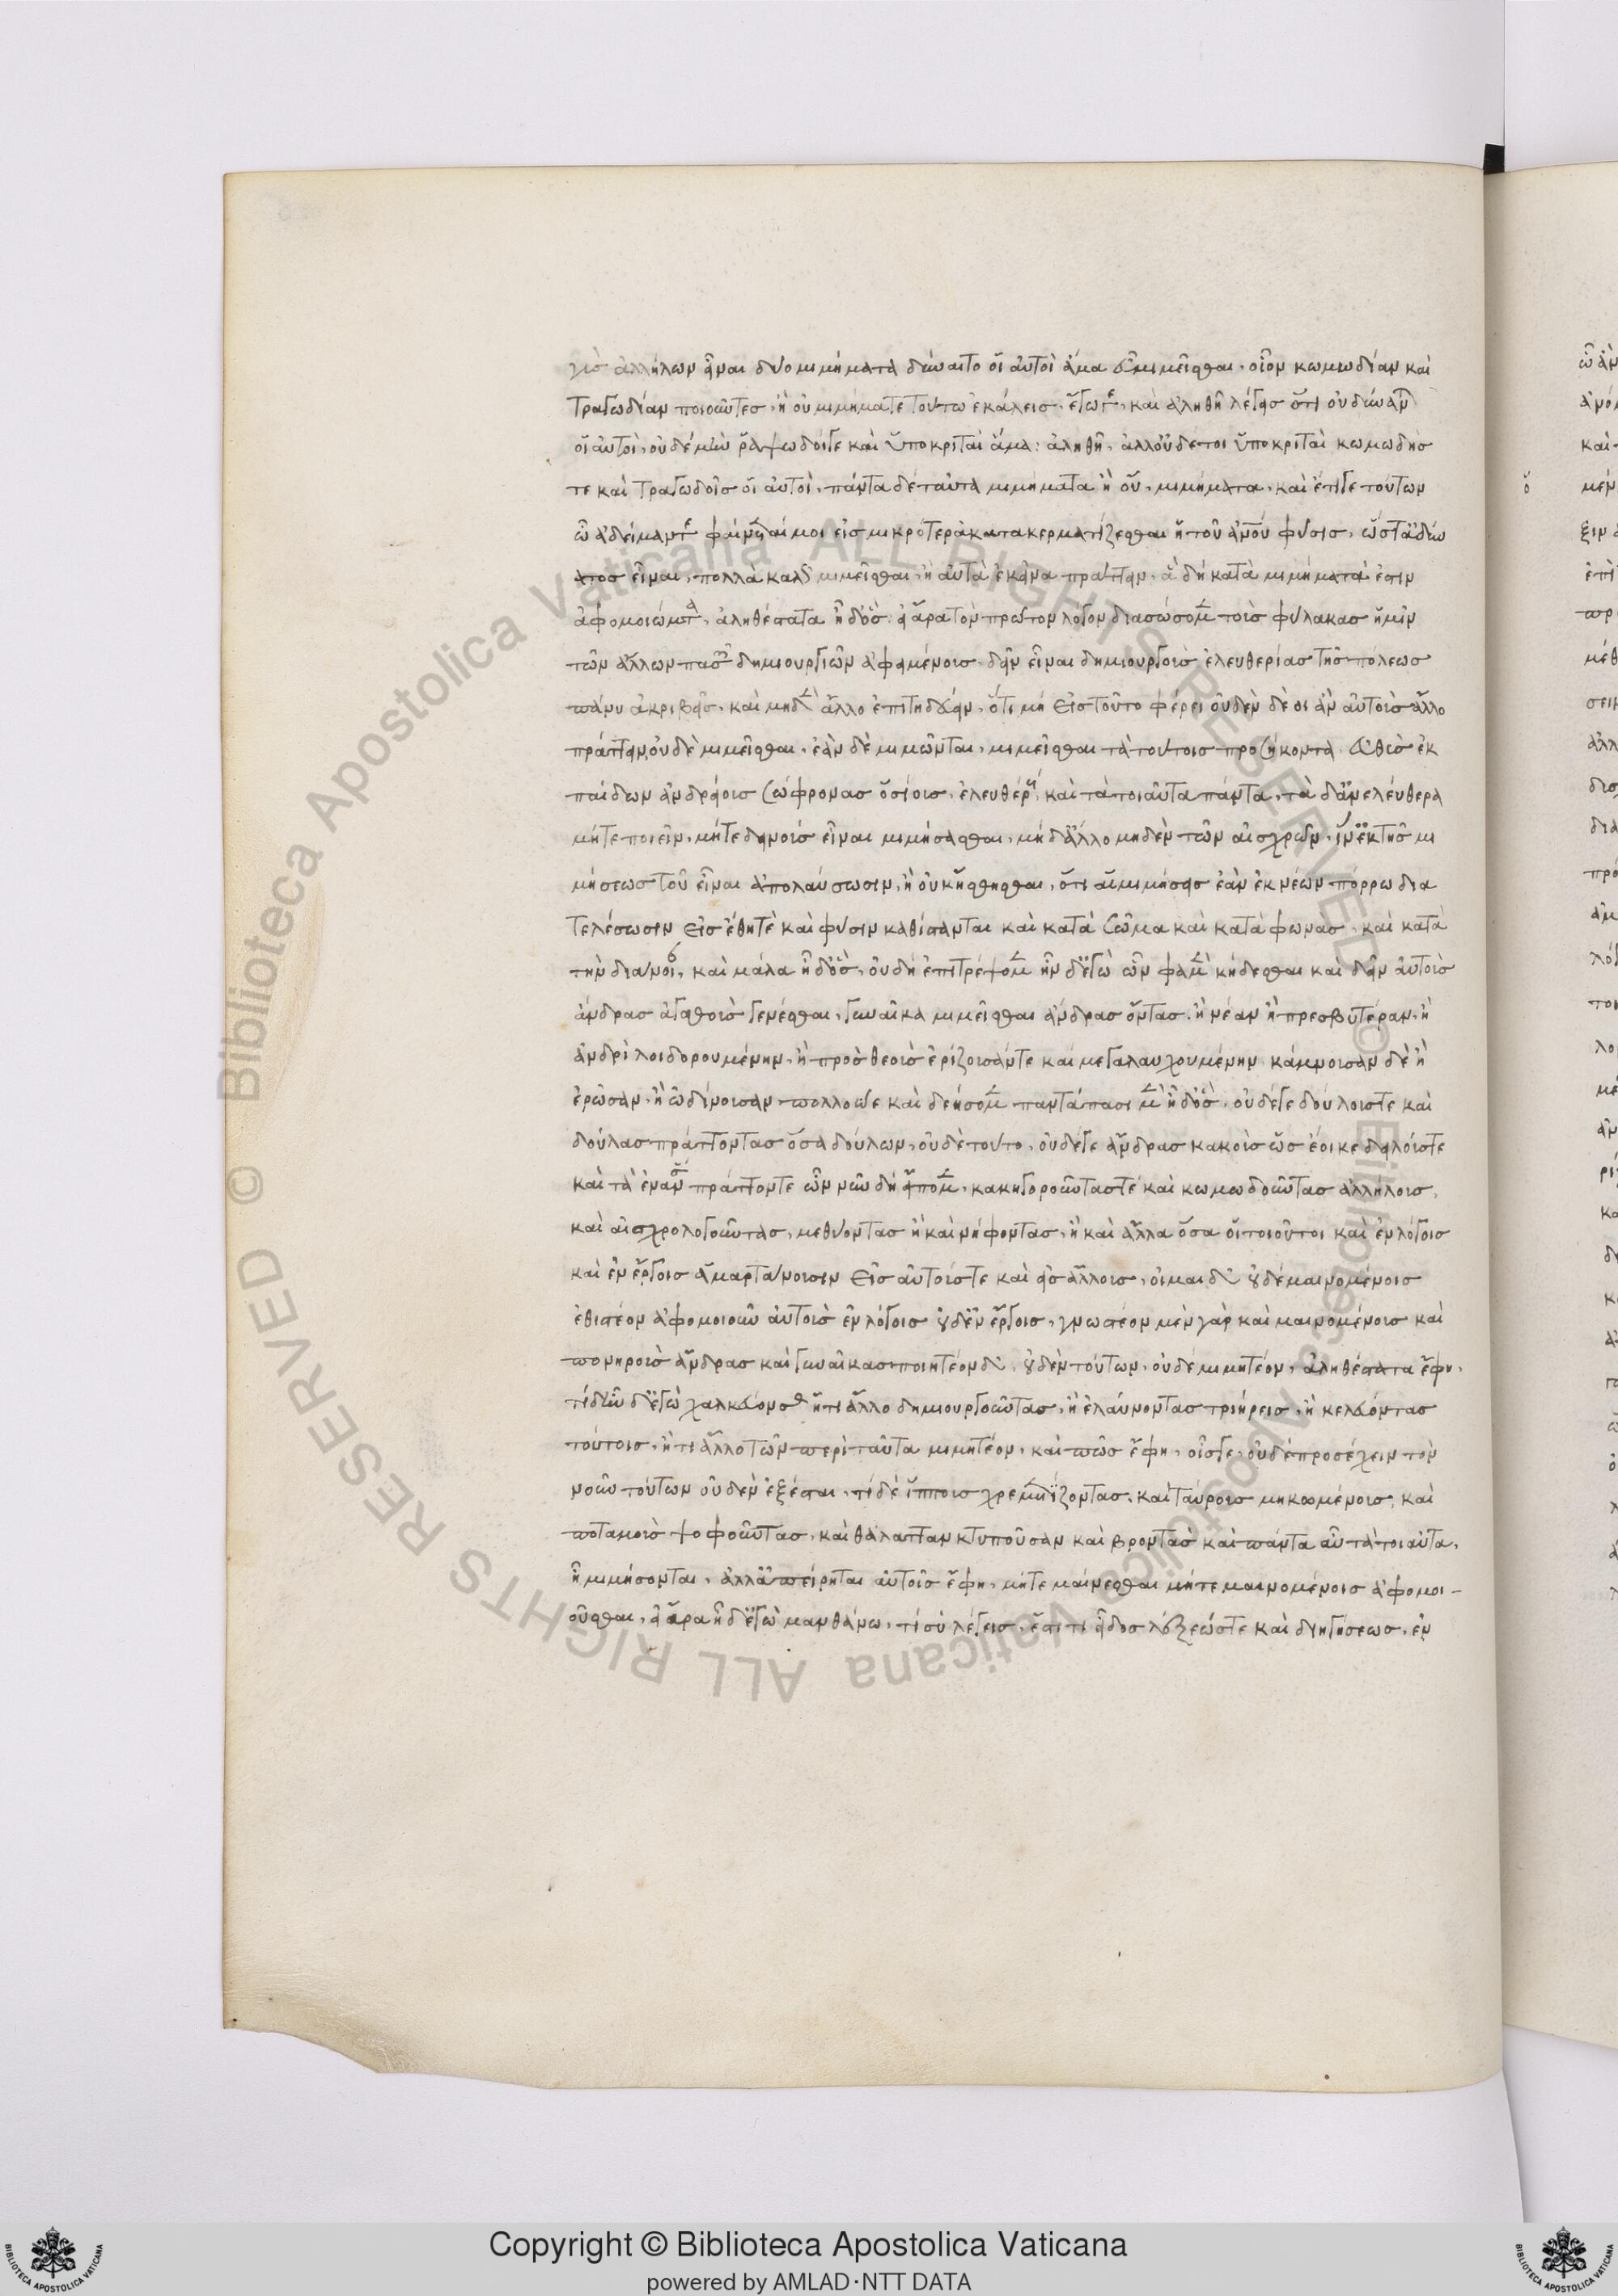 γὺς ἀλλήλων εἶναι δύο μιμήματα δύναιτο οἱ αὐτοὶ ἅμα εὖ μιμεῖσθαι. οἷον κωμωδίαν καὶ
τραγωδίαν ποιοῦντες. ἢ οὐ μιμήματε τούτω ἐκάλεις. ἔγωγε. καὶ ἀληθῆ λέγεις ὅτι οὐ δύνανται
οἱ αὐτοὶ. οὐδὲ μὴν ῥαψωδοί γε καὶ ὑποκριταὶ ἅμα: ἀληθῆ. ἀλλ οὐδέ τοι ὑποκριταὶ κωμωδοῖς
τε καὶ τραγωδοῖς οἱ αὐτοὶ. πάντα δὲ ταῦτα μιμήματα ἢ οὔ. μιμήματα. καὶ ἔτι γε τούτων
ὦ ἀδείμαντε φαίνεταί μοι εἰς μικρότερα κατακερματίζεσθαι ἡ τοῦ ἀνθρώπου φύσις. ὥστ ἀδύ
νατος εἶναι. πολλὰ καλῶς μιμεῖσθαι. ἢ αὐτὰ ἐκεῖνα πράττειν. ἃ δὴ κατὰ μιμήματά ἐστιν
ἀφομοιώματα. ἀληθέστατα ἦ δ ὅς. εἰ ἄρα τὸν πρῶτον λόγον διασώσομεν τοὺς φύλακας ἡμῖν
τῶν ἄλλων πασῶν δημιουργιῶν ἀφειμένους. δεῖν εἶναι δημιουργοὺς ἐλευθερίας τῆς πόλεως
πάνυ ἀκριβεῖς. καὶ μηδὲν ἄλλο ἐπιτηδεύειν. ὅτι μὴ εἰς τοῦτο φέρει οὐδὲν δὲ οι ἂν αὐτοὺς ἄλλο
πράττειν οὐδὲ μιμεῖσθαι. ἐὰν δὲ μιμῶνται. μιμεῖσθαι τὰ τούτοις προσήκοντα. εὐθὺς ἐκ
παίδων ἀνδρείους σώφρονας ὁσίους. ἐλευθέρους. καὶ τὰ τοιαῦτα πάντα. τὰ δ ἀνελεύθερα
μήτε ποιεῖν. μήτε δεινοὺς εἶναι μιμήσασθαι. μηδ ἄλλο μηδὲν τῶν αἰσχρῶν. ἵν ἐκ τῆς μι
μήσεως τοῦ εἶναι ἀπολαύσωσιν. ἢ οὐκ ἤσθησθαι. ὅτι αἱ μιμήσεις ἐὰν ἐκ νέων πόρρω δια
τελέσωσιν εἰς ἔθη τὲ καὶ φύσιν καθίστανται καὶ κατὰ σῶμα καὶ κατὰ φωνας. καὶ κατὰ
τὴν διάνοιαν. καὶ μάλα ἦ δ ὅς. οὐ δὴ ἐπιτρέψομεν ἦν δ ἐγὼ ὧν φαμὲν κήδεσθαι καὶ δεῖν αὐτοὺς
ἄνδρας ἀγαθοὺς γενέσθαι. γυναῖκα μιμεῖσθαι ἄνδρας ὄντας. ἢ νέαν ἢ πρεσβυτέραν. ἢ
ἀνδρὶ λοιδορουμένην. ἢ πρὸς θεοὺς ἐρίζουσάν τε καὶ μεγαλαυχουμένην. κάμνουσαν δὲ ἢ
ἐρῶσαν. ἢ ὠδίνουσαν. πολλοῦ γε καὶ δεήσομεν παντάπασι μὲν ἦ δ ὅς. οὐδέ γε δούλους τε καὶ
δούλας πράττοντας ὅσα δούλων. οὐδὲ τουτο. οὐδέ γε ἄνδρας κακοὺς ὡς ἔοικε δειλούς τε
καὶ τὰ ἐναντία πράττοντε ὧν νῦν δὴ εἴπομεν. κακηγοροῦντας τέ καὶ κωμωδοῦντας ἀλλήλους.
καὶ αἰσχρολογοῦντας. μεθύοντας ἢ καὶ νήφοντας. ἢ καὶ ἄλλα ὅσα οἱ τοιοῦτοι καὶ ἐν λόγοις
καὶ ἐν ἔργοις ἁμαρτάνουσιν εἰς αὑτούς τε καὶ εἰς ἄλλους. οἶμαι δὲ οὐδὲ μαινομένοις
ἐθιστέον ἀφομοιοῦν αὑτοὺς ἐν λόγοις οὐδ ἐν ἔργοις. γνωστέον μὲν γὰρ καὶ μαινομένους καὶ
πονηροὺς ἄνδρας καὶ γυναῖκας ποιητέον δὲ. οὐδὲν τούτων. οὐδὲ μιμητέον. ἀληθέστατα ἔφη.
τί δ οὖν δ ἐγὼ χαλκεύοντας ἤ τι ἄλλο δημιουργοῦντας. ἢ ἐλαύνοντας τριήρεις. ἢ κελεύοντας
τούτοις. ἤ τι ἄλλο τῶν περὶ ταῦτα μιμητέον. καὶ πῶς ἔφη. οἷς γε. οὐδὲ προσέχειν τὸν
νοῦν τούτων οὐδενὶ ἐξέσται. τί δὲ ἵππους χρεμετίζοντας. καὶ ταύρους μυκωμένους. καὶ
ποταμοὺς ψοφοῦντας. καὶ θάλατταν κτυποῦσαν καὶ βροντὰς καὶ πάντα αὖ τὰ τοιαῦτα.
ἦ μιμήσονται. ἀλλ ἀπείρηται αὐτοῖς ἔφη. μήτε μαίνεσθαι μήτε μαινομένοις ἀφομοι-
οῦσθαι. εἰ ἄρα ἦν δ ἐγὼ μανθάνω. τί σὺ λέγεις. ἔστι τι εἶδος λέξεώς τε καὶ διηγήσεως. ἐν
Copyright © Biblioteca Apostolica Vaticana
powered by AMLAD·NTT DATA